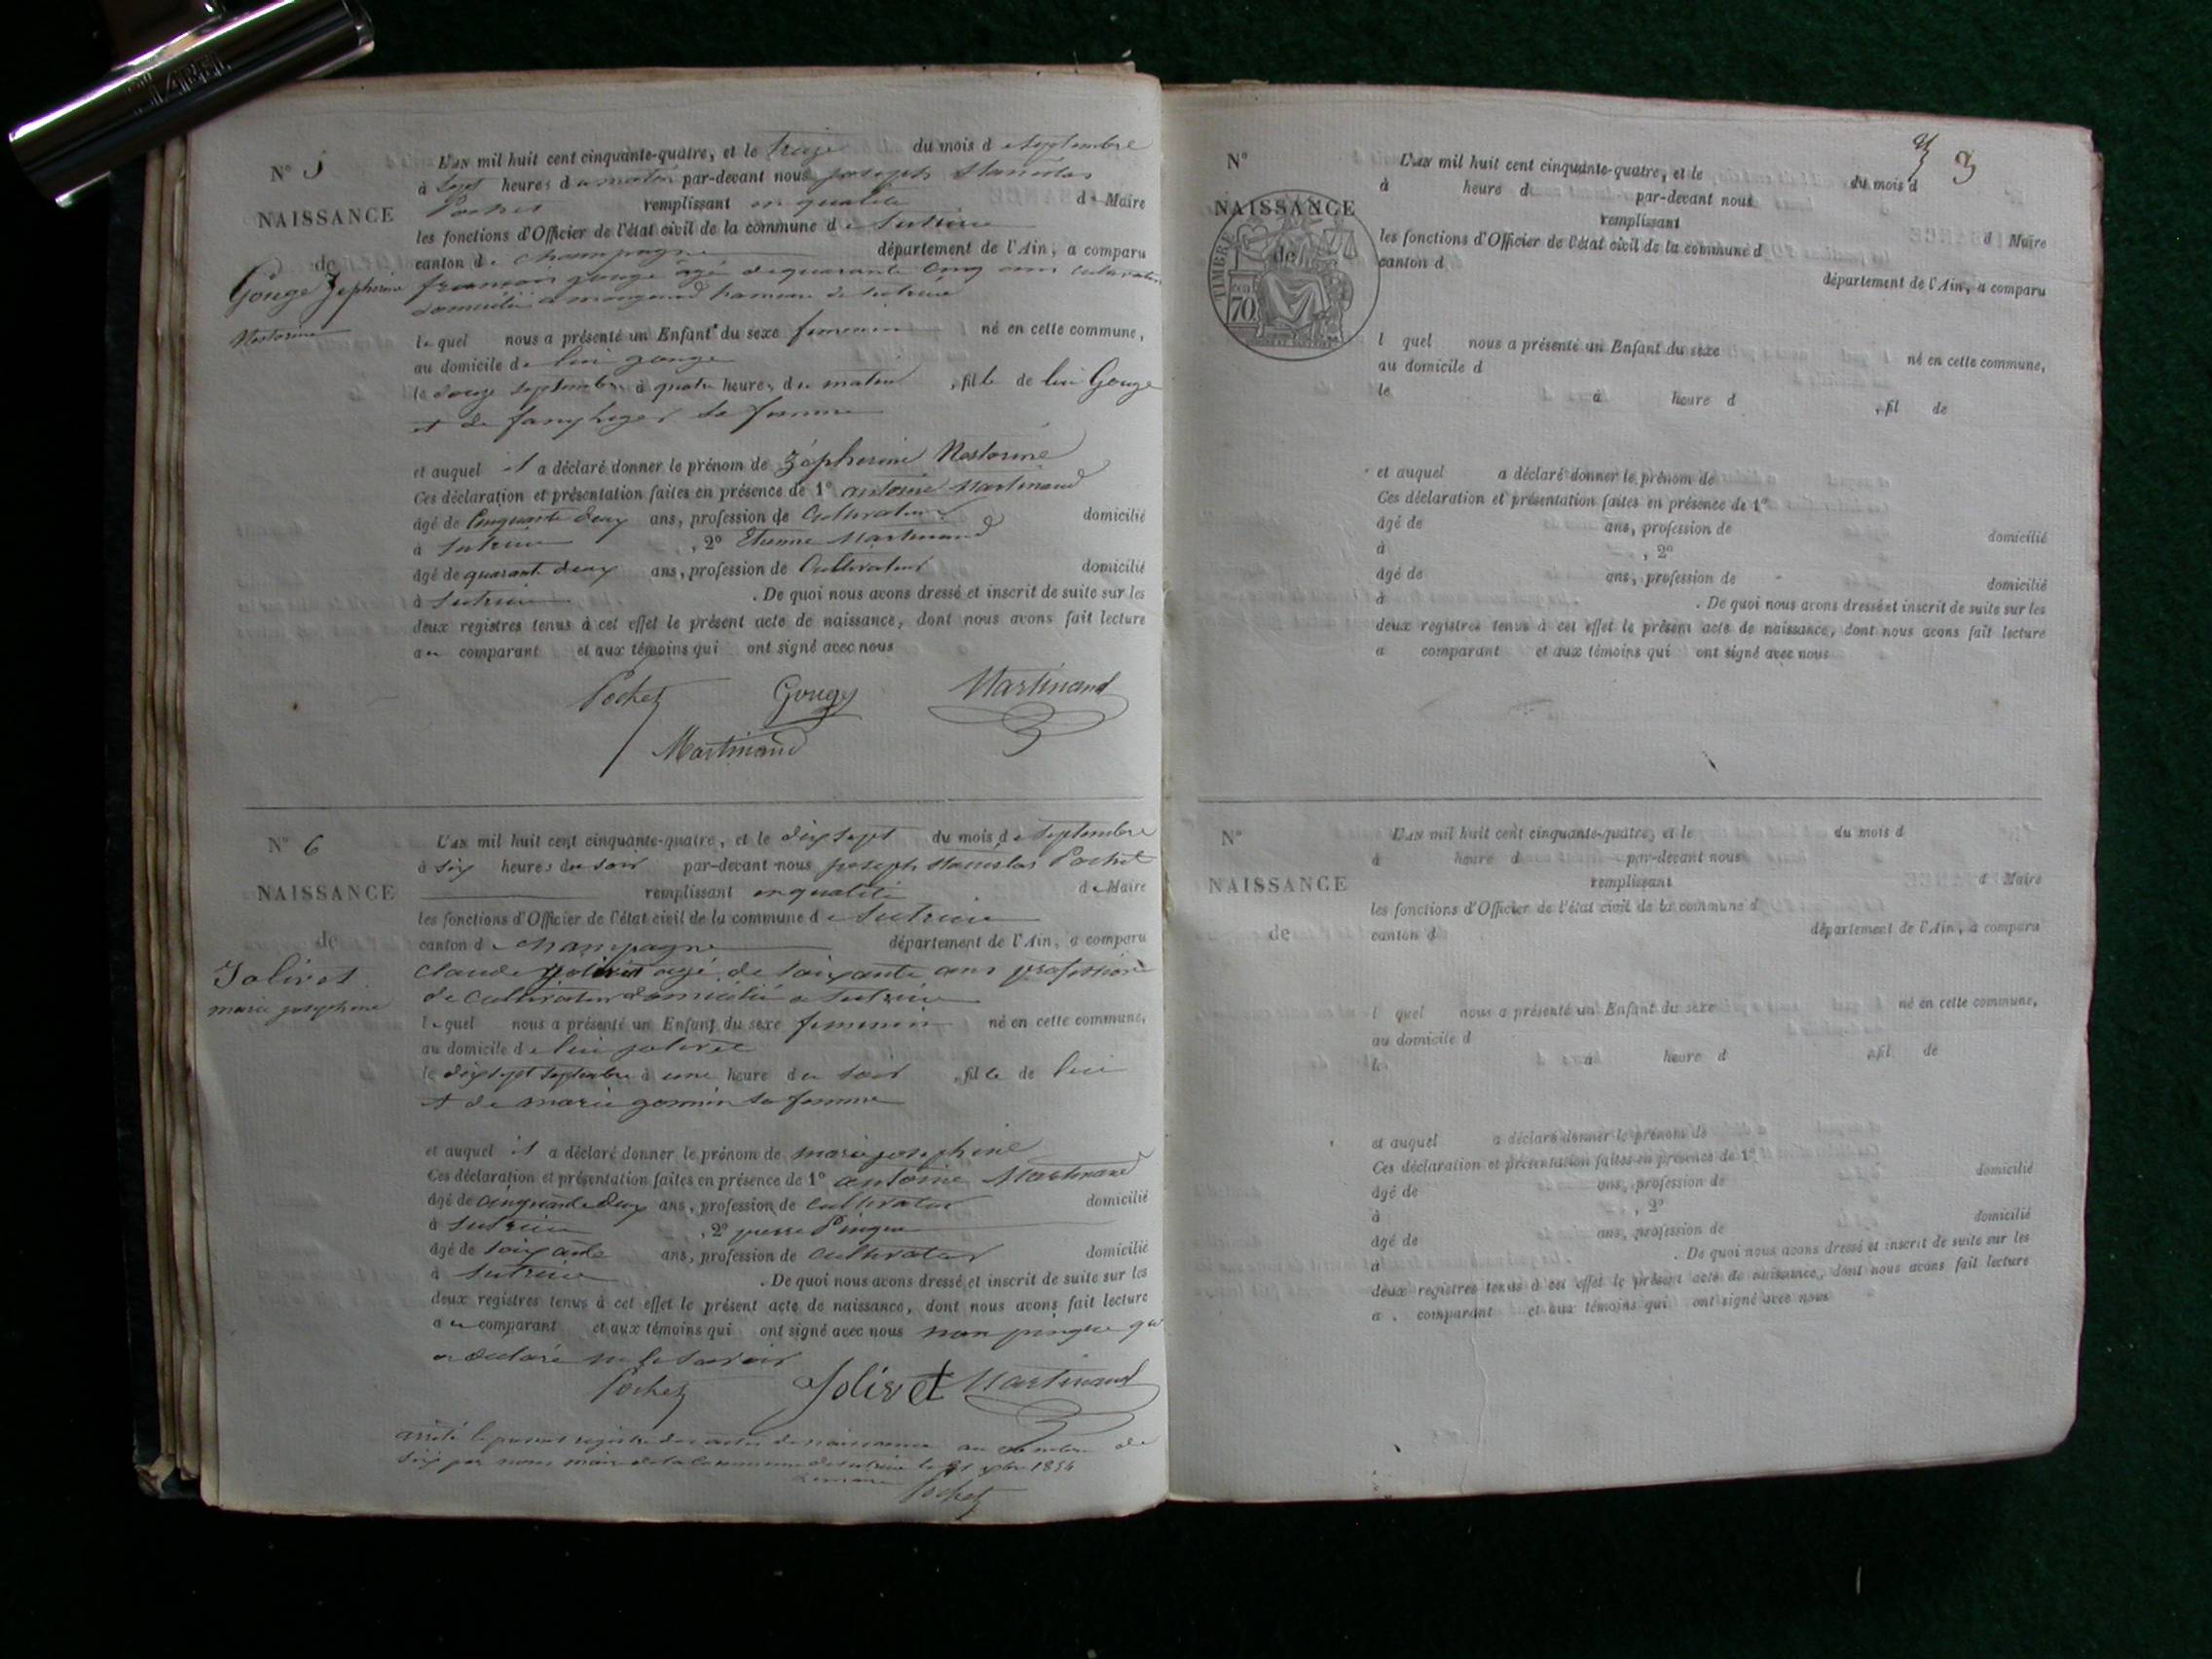 N° 5
NAISSANCE
de
Gouge Zepherine
Nestorine
L'AN mil huit cent cinquante-quatre, et le treize du mois de septembre
à sept heures du matin par-devant nous joseph Stanislas
Pochet remplissant en qualité de Maire
les fonctions d'Officier de l'état civil de la commune de Sutrieu
canton de champagne département de l'Ain, a comparu
françois gouge agé de quarante cinq ans cultivateur
domicilié a hameau de Sutrieu
lequel nous a présenté un Enfant du sexe femenin né en cette commune,
au domicile de lui gouge
le douze septembre à quatre heures du matin, fille de lui Gouge
et de fany sa femme
et auquel il a déclaré donner le prénom de Zépherine Nestorine
Ces déclaration et présentation faites en présence de 1° antoine Martinand
âgé de Cinquante deux ans, profession de Cultivateur domicilié
à Sutrieu, 2° Etienne Martinand
âgé de quarante deux ans, profession de Cultivateur domicilié
à Sutrieu. De quoi nous avons dressé et inscrit de suite sur les
deux registres tenus à cet effet le présent acte de naissance, dont nous avons fait lecture
au comparant et aux témoins qui ont signé avec nous
Pochet Gouge Martinand
Martinand
N° 6
NAISSANCE
de
Jolivet
marie josephine
L'AN mil huit cent cinquante-quatre, et le dix sept du mois de septembre
à six heures du soir par-devant nous joseph stanislas Pochet
remplissant en qualité de Maire
les fonctions d'Officier de l'état civil de la commune de Sutrieu
canton de champagne département de l'Ain, a comparu
claude jolivet agé de soixante ans profession
de cultivateur domicilié a Sutrieu
lequel nous a présenté un Enfant du sexe femenin né en cette commune,
au domicile de lui jolivet
le dix sept septembre à une heure du soir, fille de lui
et de marie gonnin sa femme
et auquel il a déclaré donner le prénom de marie josephine
Ces déclaration et présentation faites en présence de 1° antoine Martinand
âgé de cinquante deux ans, profession de cultivateur domicilié
à Sutrieu, 2° pierre Pingue
âgé de soixante ans, profession de cultivateur domicilié
à Sutrieu. De quoi nous avons dressé et inscrit de suite sur les
deux registres tenus à cet effet le présent acte de naissance, dont nous avons fait lecture
au comparant et aux témoins qui ont signé avec nous non pingue qui
a déclaré ne le savoir
Pochet Jolivet Martinand
arrêté le présent registre des actes de naissance au nombre de
six par nous maire de la commune de sutrieu le 31 xbre 1854
Le maire Pochet
3
N°
NAISSANCE
de
TIMBRE
70
L'AN mil huit cent cinquante-quatre, et le du mois d
à heure d par-devant nous
remplissant d Maire
les fonctions d'Officier de l'état civil de la commune d
canton d département de l'Ain, a comparu
l quel nous a présenté un Enfant du sexe né en cette commune,
au domicile d
le à heure d , fil de
et auquel a déclaré donner le prénom de
Ces déclaration et présentation faites en présence de 1°
âgé de ans, profession de domicilié
à , 2°
âgé de ans, profession de domicilié
à . De quoi nous avons dressé et inscrit de suite sur les
deux registres tenus à cet effet le présent acte de naissance, dont nous avons fait lecture
a comparant et aux témoins qui ont signé avec nous
N°
NAISSANCE
de
L'AN mil huit cent cinquante-quatre, et le du mois d
à heure d par-devant nous
remplissant d Maire
les fonctions d'Officier de l'état civil de la commune d
canton d département de l'Ain, a comparu
l quel nous a présenté un Enfant du sexe né en cette commune,
au domicile d
le à heure d , fil de
et auquel a déclaré donner le prénom de
Ces déclaration et présentation faites en présence de 1°
âgé de ans, profession de domicilié
à , 2°
âgé de ans, profession de domicilié
à . De quoi nous avons dressé et inscrit de suite sur les
deux registres tenus à cet effet le présent acte de naissance, dont nous avons fait lecture
a comparant et aux témoins qui ont signé avec nous